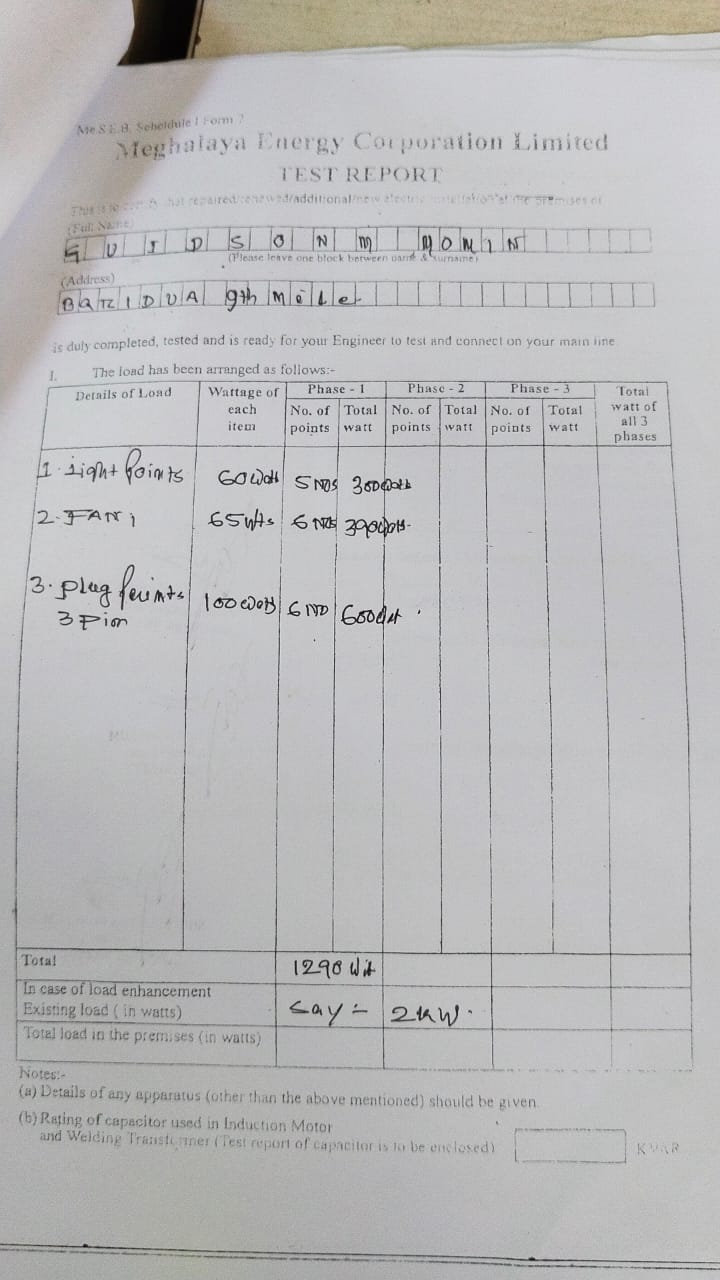 Me.S.E.B. Schedule I Form 7
Meghalaya Energy Corporation Limited
TEST REPORT
This is to certify that repaired/renewed/additional/new electric installation at the premises of
(Full Name)
GUIDSON M MOMIN
(Please leave one block between name & surname)
(Address)
BARIDUA 9th Mile
is duly completed, tested and is ready for your Engineer to test and connect on your main line.
1. The load has been arranged as follows:-
Details of Load Wattage of each item Phase - 1 Phase - 2 Phase - 3 Total watt of all 3 phases
No. of points Total watt No. of points Total watt No. of points Total watt
1. Light Points 60 watt 5 NOS 300 watt
2. FAN 65 wts 6 NOS 390 watt
3. Plug Points 100 watt 6 NO 600
3 Pion
Total 1290 Wt
In case of load enhancement
Existing load ( in watts) Say = 2KW.
Total load in the premises (in watts)
Notes:-
(a) Details of any apparatus (other than the above mentioned) should be given.
(b) Rating of capacitor used in Induction Motor
and Welding Transformer (Test report of capacitor is to be enclosed) KVAR